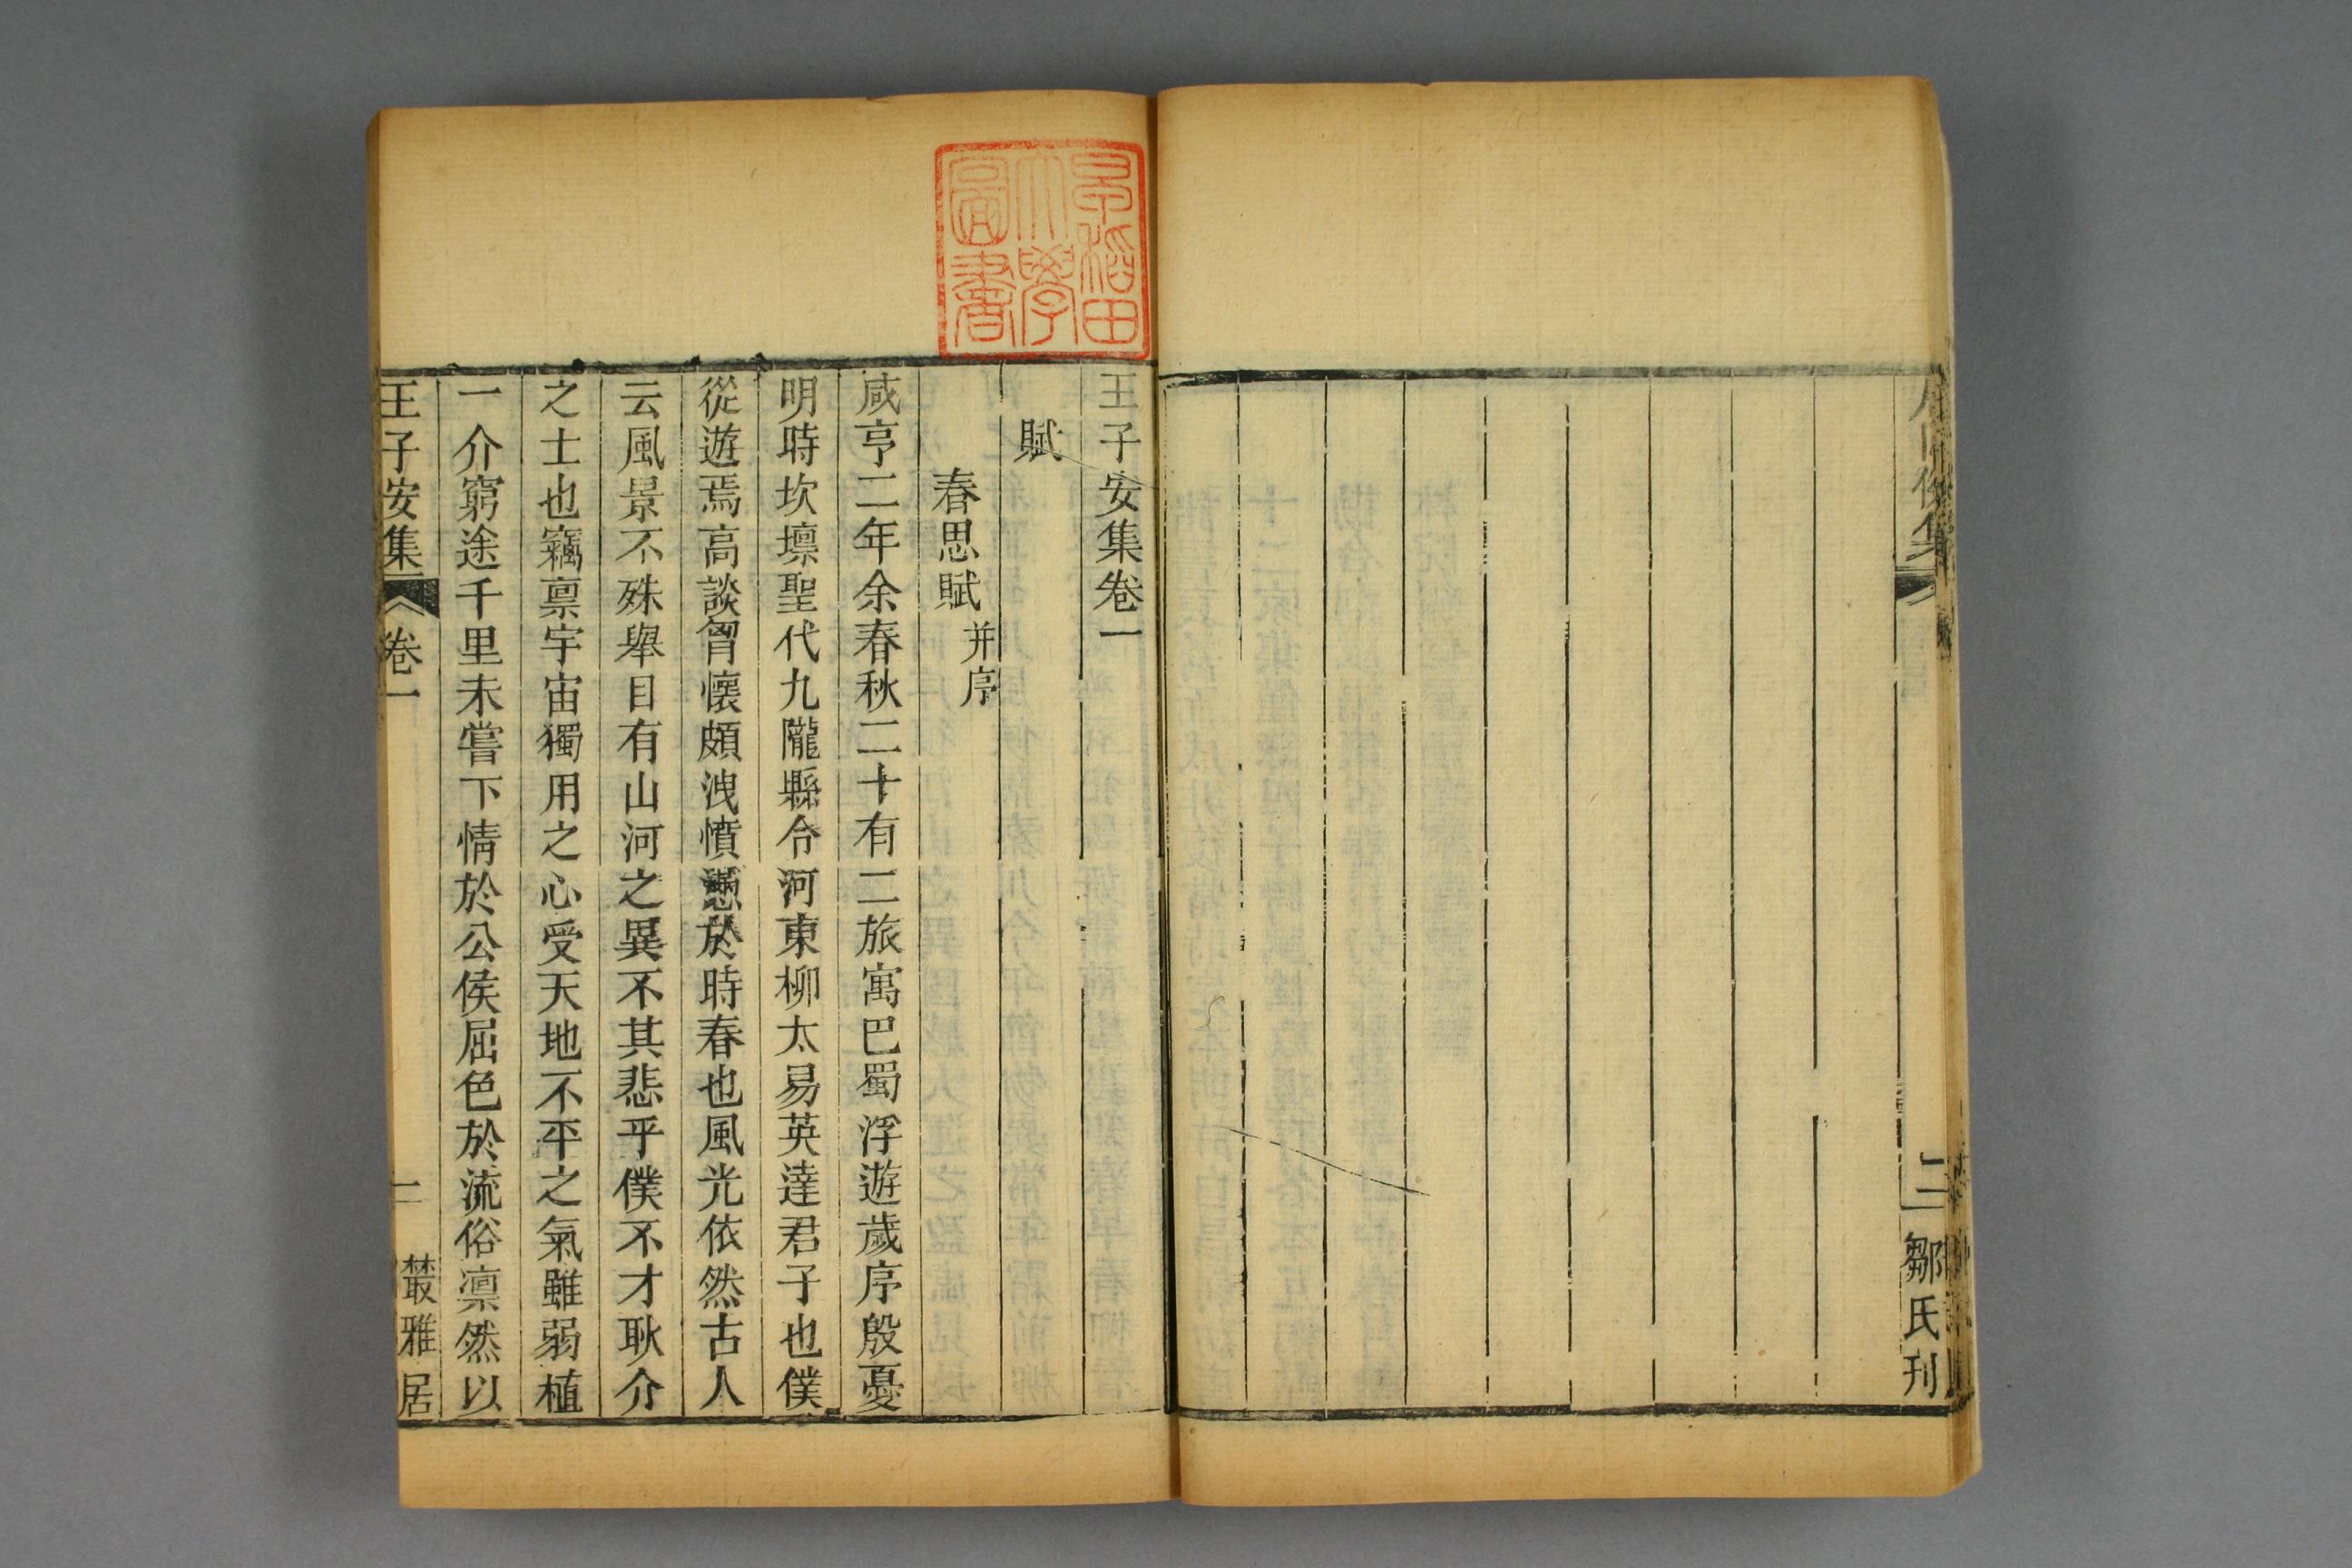 集
二
鄒氏刊
早稲田
大學
圖書
王子安集卷一
賦
春思賦并序
咸亨二年余春秋二十有二旅寓巴蜀浮遊歲序殷憂
明時坎壈聖代九隴縣令河東柳太易英達君子也僕
從遊焉高談胷懷頗洩憤懣於時春也風光依然古人
云風景不殊舉目有山河之異不其悲乎僕不才耿介
之士也竊禀宇宙獨用之心受天地不平之氣雖弱植
一介窮途千里未嘗下情於公侯屈色於流俗凛然以
王子安集
卷一
一
叢雅居